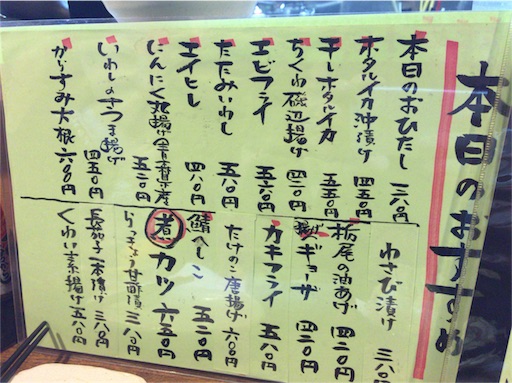 本日のおすすめ
本日のおひたし 三八〇円
ホタルイカ沖漬け 四五〇円
干しホタルイカ 五五〇円
ちくわ磯辺揚げ 四二〇円
エビフライ 五六〇円
たたみいわし 五八〇円
エイヒレ 四八〇円
にんにく丸揚げ(青森産) 五三〇円
いわしのさつま揚げ 四五〇円
からすみ大根 六〇〇円
わさび漬け 三八〇円
栃尾の油あげ 四二〇円
揚げギョーザ 四二〇円
カキフライ 五八〇円
たけのこ唐揚げ 六〇〇円
鯖へしこ 五二〇円
煮カツ 六五〇円
らっきょう甘酢漬 三八〇円
長茄子一本漬け 三八〇円
くわい素揚げ 五八〇円